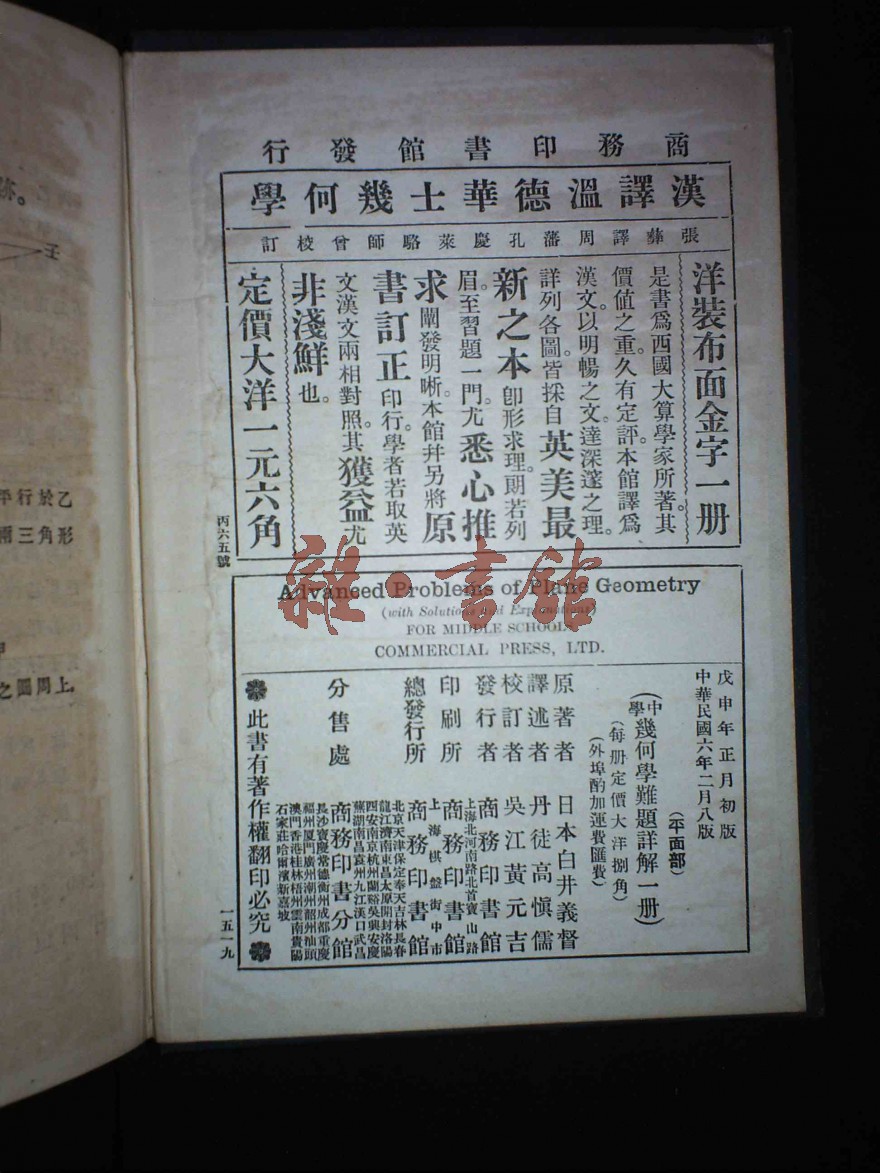 商務印書館發行
漢譯溫德華士幾何學
張彝譯 周藩 孔慶萊 駱師曾校訂
洋裝布面金字一册
是書爲西國大算學家所著。其
價值之重。久有定評。本館譯爲
漢文。以明暢之文。達深邃之理。
詳列各圖。皆採自英美最
新之本。卽形求理。朗若列
眉。至習題一門。尤悉心推
求。闡發明晰。本館幷另將原
書訂正印行。學者若取英
文漢文兩相對照。其獲益尤
非淺鮮也。
定價大洋一元六角
丙六五號
Advanced Problems of Plane Geometry
(with Solutions and Explanations)
FOR MIDDLE SCHOOLS
COMMERCIAL PRESS, LTD.
戊申年正月初版
中華民國六年二月八版
(平面部)
(中學幾何學難題詳解一册)
(每册定價大洋捌角)
(外埠酌加運費匯費)
原著者 日本白井義督
譯述者 丹徒高愼儒
校訂者 吳江黃元吉
發行者 商務印書館
上海北河南路北首寶山路
印刷所 商務印書館
上海棋盤街中市
總發行所 商務印書館
北京天津保定奉天吉林長春
龍江濟南東昌太原開封洛陽
西安南京杭州蘭谿吳興安慶
蕪湖南昌袁州九江漢口武昌
分售處 商務印書分館
長沙寶慶常德衡州成都重慶
福州厦門廣州潮州韶州汕頭
澳門香港桂林梧州雲南貴陽
石家莊哈爾濱新嘉坡
此書有著作權翻印必究
一五一九
雜·書館
跡。
壬
平行於乙
兩三角形
甲
之圓周上